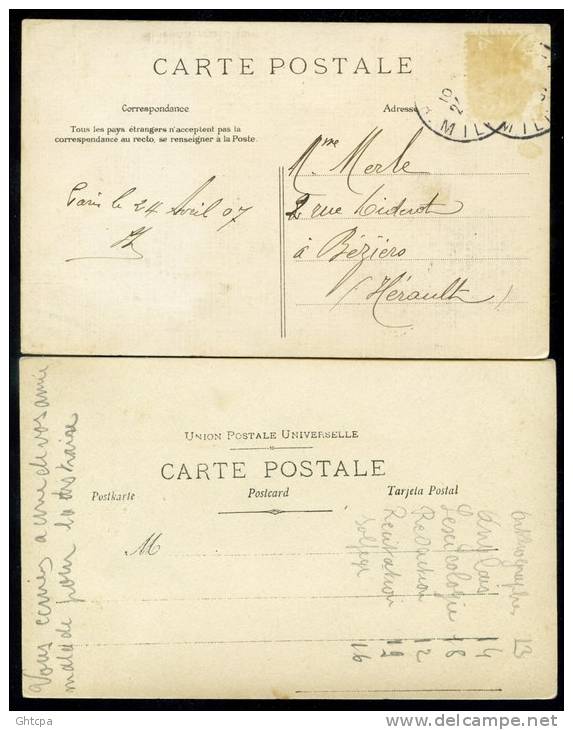 CARTE POSTALE
Correspondance
Adresse
Tous les pays étrangers n'acceptent pas la
correspondance au recto, se renseigner à la Poste.
MIL
MIL
Paris le 24 Avril 07
Mme Merle
2 rue Diderot
à Béziers
(Hérault)
UNION POSTALE UNIVERSELLE
CARTE POSTALE
Postkarte
Postcard
Tarjeta Postal
M
Vous a une de vos amie
malade pour la distraire
Orthographe 13
Anglais 14
Lexicologie 18
Redaction 12
Recitation 19
Solfege 16
Ghtcpa
www.delcampe.net